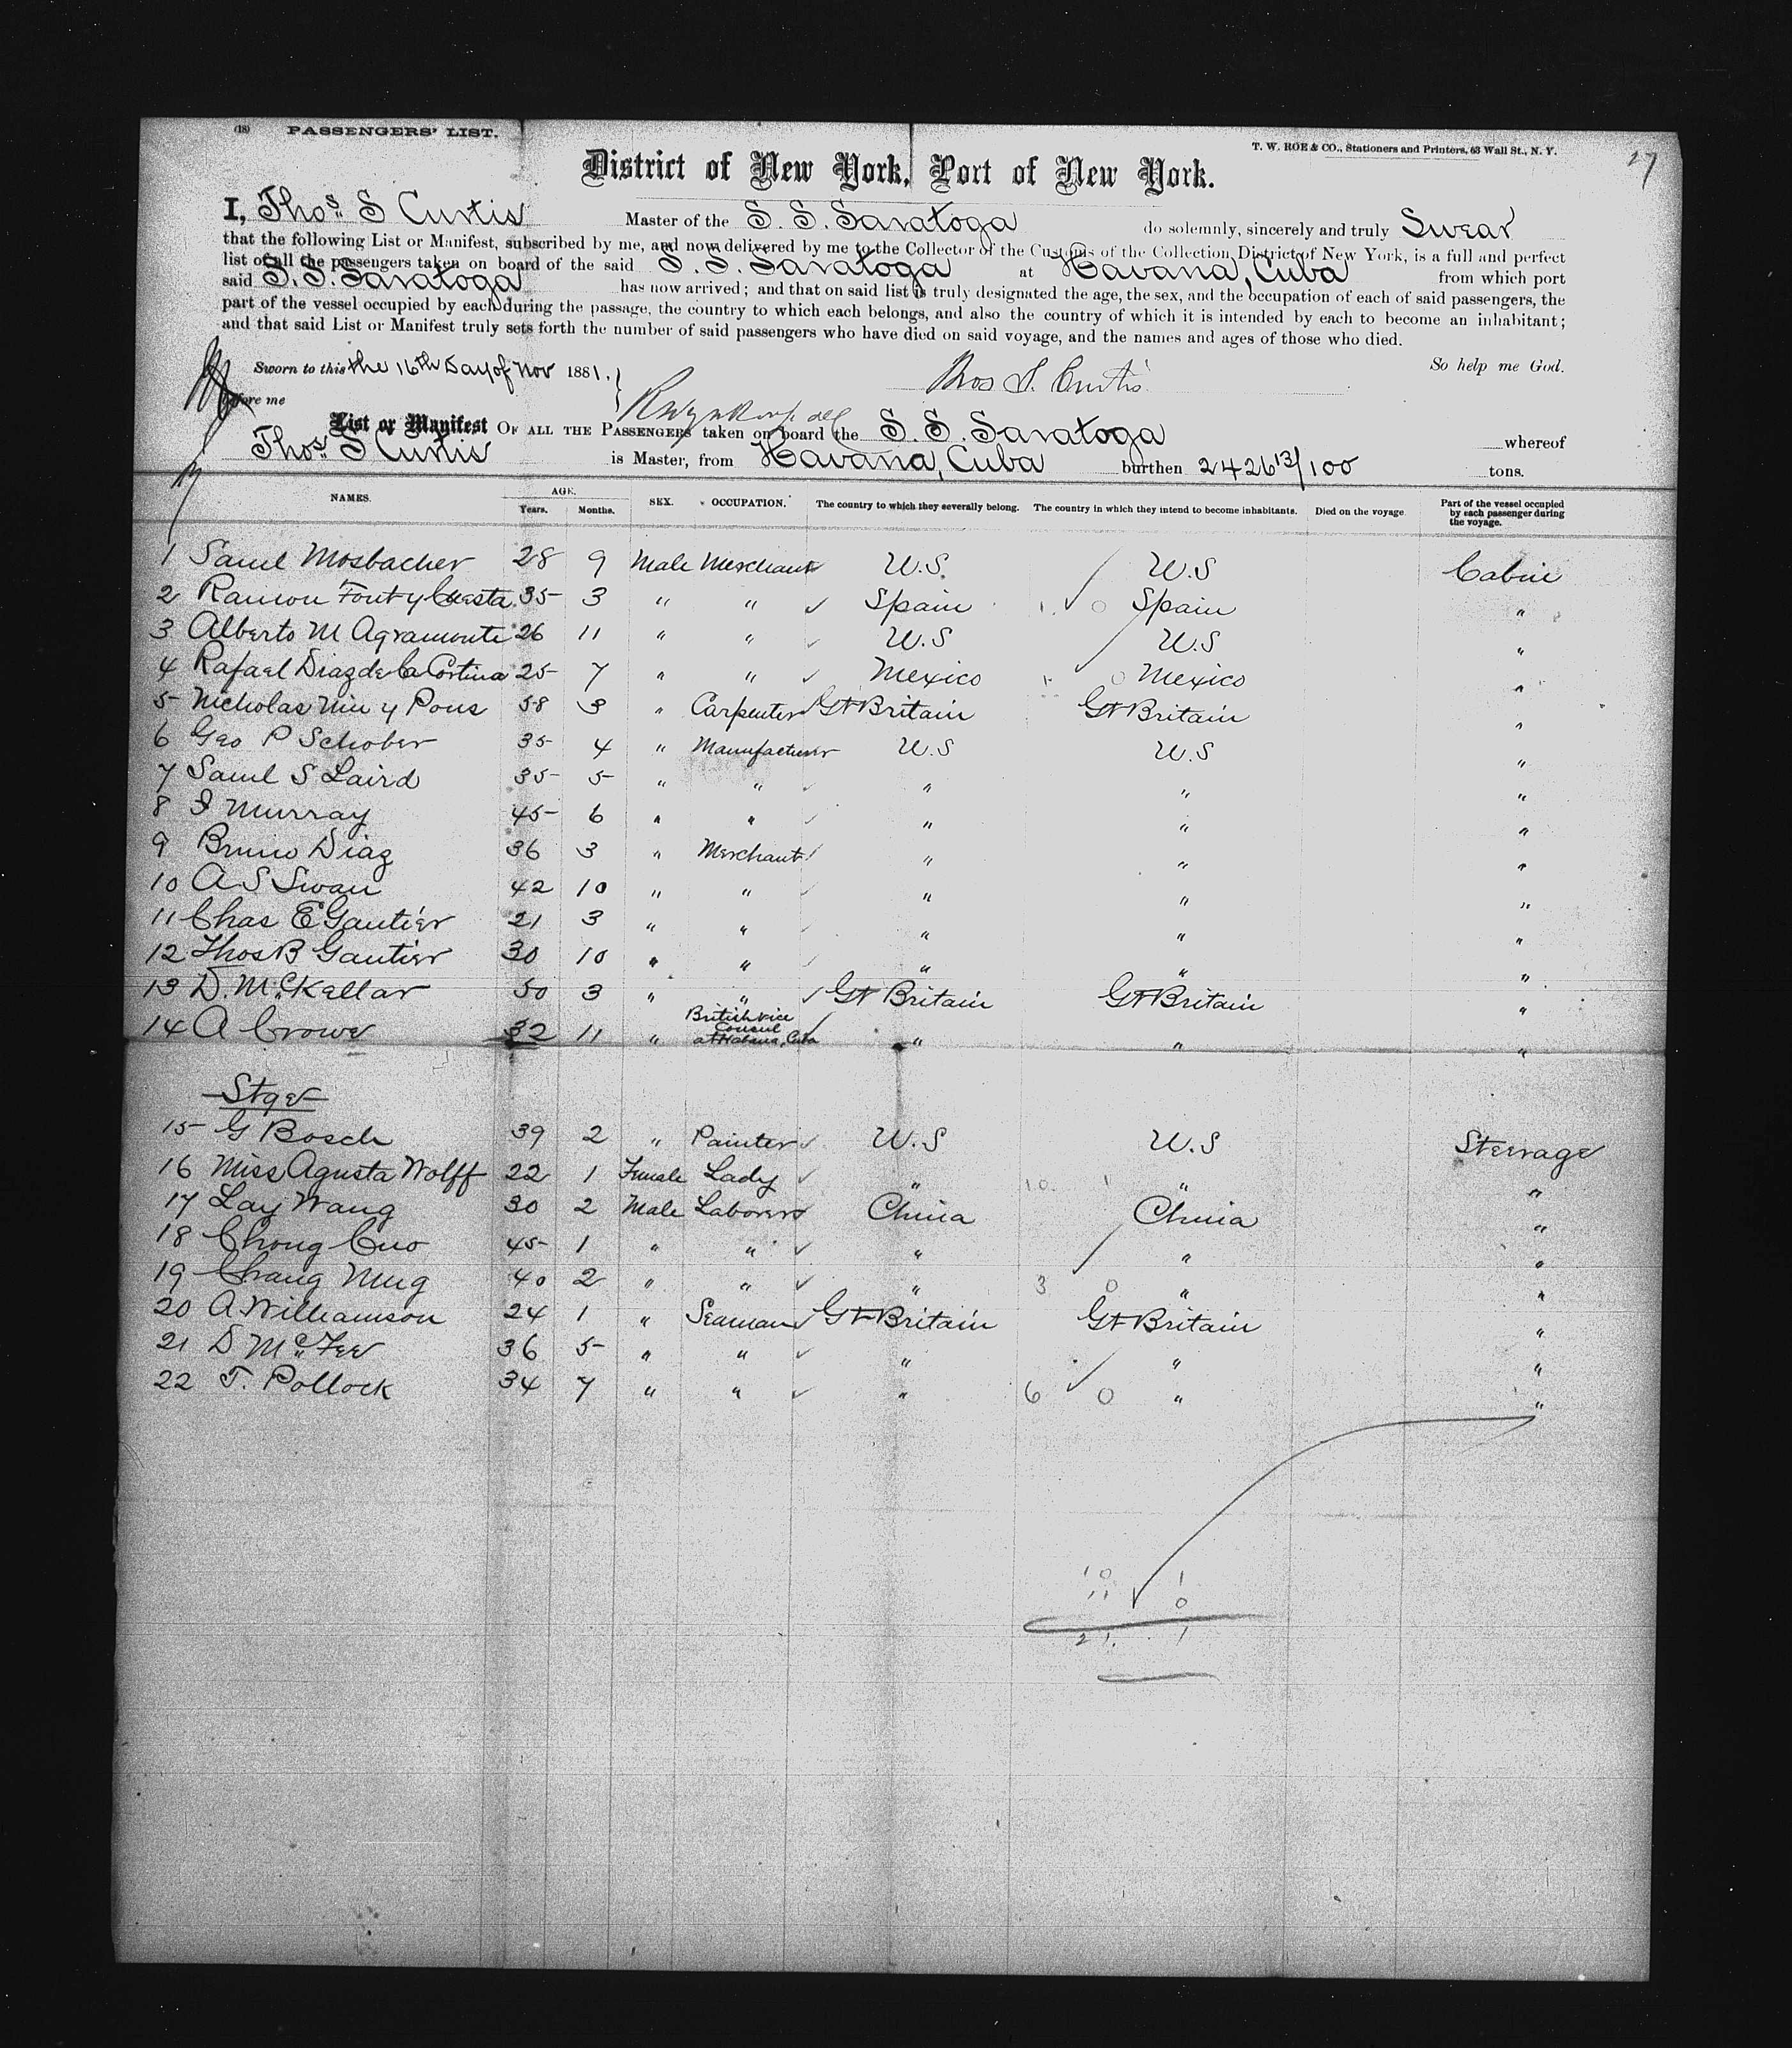 (18) PASSENGERS' LIST.
T. W. ROE & CO., Stationers and Printers, 63 Wall St., N. Y.
27
District of New York, Port of New York.
I, Thos. S Curtis Master of the S. S. Saratoga do solemnly, sincerely and truly Swear
that the following List or Manifest, subscribed by me, and now delivered by me to the Collector of the Customs of the Collection District of New York, is a full and perfect
list of all the passengers taken on board of the said S. S. Saratoga at Havana, Cuba from which port
said S. S. Saratoga has now arrived; and that on said list is truly designated the age, the sex, and the occupation of each of said passengers, the
part of the vessel occupied by each during the passage, the country to which each belongs, and also the country of which it is intended by each to become an inhabitant;
and that said List or Manifest truly sets forth the number of said passengers who have died on said voyage, and the names and ages of those who died.
So help me God.
Sworn to this the 16th Day of Nov 1881. Thos S. Curtis
before me
List or Manifest OF ALL THE PASSENGERS taken on board the S. S. Saratoga whereof
Thos. S Curtis is Master, from Havana, Cuba burthen 2426 13/100 tons.
NAMES. AGE. Years. Months. SEX. OCCUPATION. The country to which they severally belong. The country in which they intend to become inhabitants. Died on the voyage. Part of the vessel occupied by each passenger during the voyage.
1 Saml Mosbacher 28 9 Male Merchant U.S. U.S Cabin
2 Ramon Font y Cuesta 35 3 " " Spain 1 0 Spain "
3 Alberto M Agramonte 26 11 " " U.S U.S "
4 Rafael Diaz de la Cortina 25 7 " " Mexico 1 0 Mexico "
5 Nicholas Nin y Pons 58 3 " Carpenter Gt Britain Gt Britain "
6 Geo P Schober 35 4 " Manufacturer U.S U.S "
7 Saml S Laird 35 5 " " " " "
8 J Murray 45 6 " " " " "
9 Bruno Diaz 36 3 " Merchant " " "
10 A S Swan 42 10 " " " " "
11 Chas E Gautier 21 3 " " " " "
12 Thos B Gautier 30 10 " " " " "
13 D. McKellar 50 3 " " Gt Britain Gt Britain "
14 A Crowe 32 11 " British vice Consul at Habana, Cuba " " "
Stge
15 G Bosch 39 2 " Painter U.S U.S Steerage
16 Miss Agusta Wolff 22 1 Female Lady " 10 1 " "
17 Lay Wang 30 2 Male Laborer China China "
18 Chong Cuo 45 1 " " " " "
19 Chang Mug 40 2 " " " 3 0 " "
20 A Williamson 24 1 " Seaman Gt Britain Gt Britain "
21 D McFee 36 5 " " " " "
22 T. Pollock 34 7 " " " 6 0 " "
10 1
11 0
21. 1